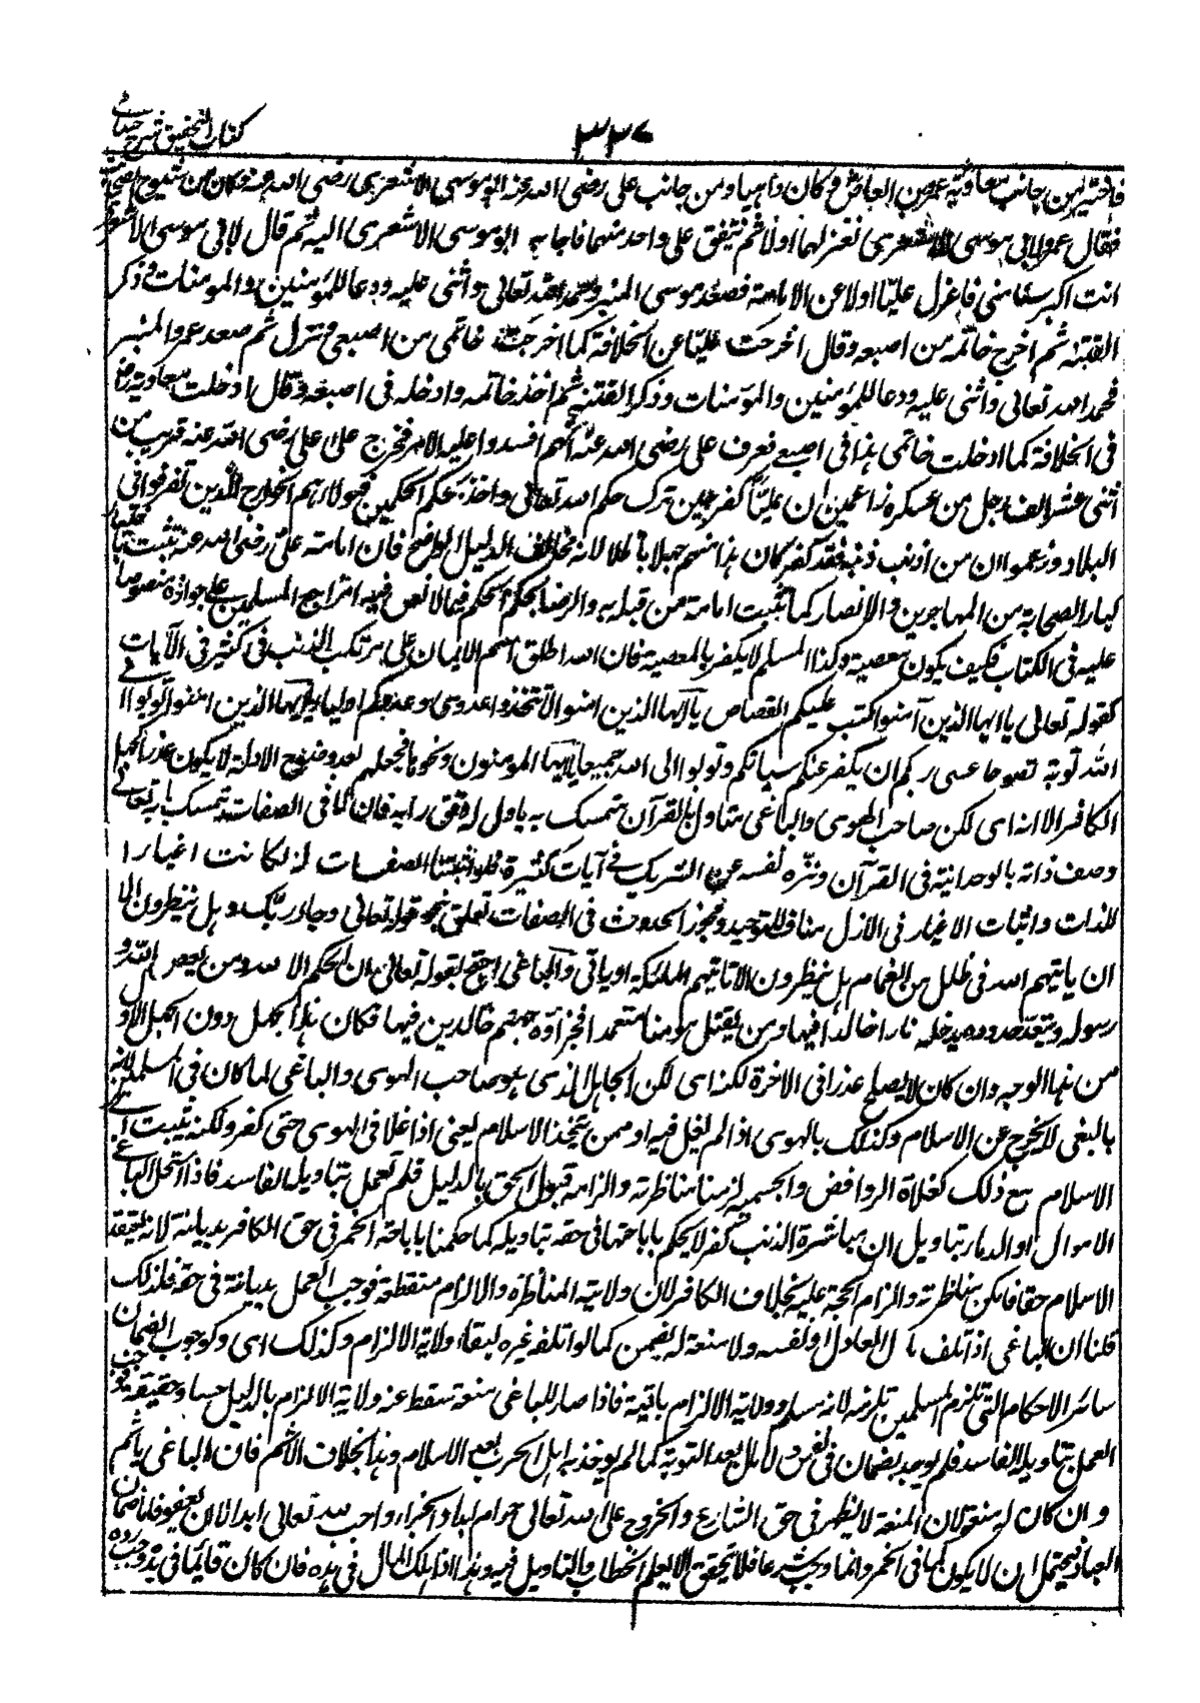 كتاب التحقيق شرح حسامى
٣٣٧
فاختير من جانب معاوية عمرو بن العاص وكان داهيا ومن جانب على رضى الله عنه ابو موسى الاشعرى رضى الله عنه وكان من شيوخ الصحابة
فقال عمرو لابى موسى الاشعرى نعزلهما اولا ثم نتفق على واحد منهما فاجابه ابو موسى الاشعرى اليه ثم قال لابى موسى الاشعرى
انت اكبر سنا منى فاعزل عليا اولا عن الامامة فصعد موسى المنبر وحمد الله تعالى واثنى عليه ودعا للمؤمنين والمومنات وذكر
الفتنة ثم اخرج خاتمه من اصبعه وقال اخرجت عليا عن الخلافة كما اخرجت خاتمى من اصبعى ونزل ثم صعد عمرو المنبر
فحمد الله تعالى واثنى عليه ودعا للمؤمنين والمؤمنات وذكر الفتنة ثم اخذ خاتمه وادخله فى اصبعه وقال ادخلت معاوية رض
فى الخلافة كما ادخلت خاتمى هذا فى اصبعى فعرف على رضى الله عنه انهم افسدوا عليه الامر فخرج على على رضى الله عنه قريب من
اثنى عشر الف رجل من عسكره زاعمين ان عليا كفر حين ترك حكم الله تعالى واخذ بحكم الحكمين فهؤلاء هم الخوارج الذين تفرقوا فى
البلاد وزعموا ان من اذنب ذنبا فقد كفر كان هذا منهم جهلا باطلا لانه مخالف الدليل الواضح فان امامة على رضى الله عنه ثبتت باختيار
كبار الصحابة من المهاجرين والانصار كما ثبت امامة من قبله به والرضا بحكم الحكم فيما لا نص فيه امر اجمع المسلمين على جوازه منصوصا
عليه فى الكتاب فكيف يكون معصية وكذا المسلم لا يكفر بالمعصية فان الله اطلق اسم الايمان على مرتكب الذنب فى كثير من الآيات
كقوله تعالى يا ايها الذين آمنوا كتب عليكم القصاص يا ايها الذين امنوا لا تتخذوا عدوى وعدوكم اولياء يا ايها الذين امنوا توبوا الى
الله توبة نصوحا عسى ربكم ان يكفر عنكم سياتكم وتوبوا الى الله جميعا ايها المومنون ونحوها فجهلهم بعد وضوح الادلة لا يكون عذرا كجهل
الكافر الا انه اى لكن صاحب الهوى والباغى متاول بالقرآن متمسك به ياول له وفق رايه فان نافى الصفات تمسك بانه تعالى
وصف ذاته بالوحدانية فى القرآن ونزه نفسه عن الشريك فى آيات كثيرة فلو اثبتنا الصفات له لكانت اغيارا
للذات واثبات الاغيار فى الازل مناف للتوحيد ومجوز الحدوث فى الصفات تعلق بنحو قوله تعالى وجاء ربك وهل ينظرون الا
ان ياتيهم الله فى ظلل من الغمام هل ينظرون الا تاتيهم الملئكة او ياتى والباغى احتج بقوله تعالى ان الحكم الا لله ومن يعص الله و
رسوله ويتعد حدوده يدخله نارا خالدا فيها ومن يقتل مومنا متعمدا فجزاؤه جهنم خالدين فيها فكان هذا الجهل دون الجهل الاول
من هذا الوجه وان كان لا يصلح عذرا فى الاخرة لكنه اى لكن الجاهل الذى هو صاحب الهوى والباغى لما كان من المسلمين لانه
بالبغى لا يخرج عن الاسلام وكذلك بالهوى اذا لم يغل فيه او ممن ينتحل الاسلام يعنى اذا غلا فى الهوى حتى كفر ولكنه ينتسب الى
الاسلام مع ذلك كغلاة الروافض والمجسمة لزمنا مناظرته والزامه قبول الحق بالدليل فلم نعمل بتاويله الفاسد فاذا استحل الباغى
الاموال او الدماء بتاويل ان مباشرة الذنب كفر لا يحكم باباحتها فى حقه بتاويله كما حكمنا باباحة الخمر فى حق الكافر بديانته لانه يعتقد
الاسلام حقا فامكن مناظرته والزام الحجة عليه بخلاف الكافر لان ولاية المناظرة والالزام منقطعة فوجب العمل بديانته فى حقه فلذلك
قلنا ان الباغى اذا اتلف مال العادل او نفسه ولا منعة له يضمن كما لو اتلفه غيره لبقاء ولاية الالزام وكذلك اى وكوجوب الضمان
سائر الاحكام التى تلزم المسلمين تلزمه لانه مسلم وولاية الالزام باقية فاذا صار للباغى منعة سقط عنه ولاية الالزام بالدليل حسا وحقيقة فوجب
العمل بتاويله الفاسد فلم يوخذ بضمان فى نفس ولا مال بعد التوبة كما لم يوخذ به اهل الحرب بعد الاسلام وهذا بخلاف الاثم فان الباغى ياثم
وان كان له منعة لان المنعة لا يظهر فى حق الشارع والخروج على الله تعالى حرام ابدا والجزاء واجب لله تعالى ابدا الا ان يعفو فاما ضمان
العباد فيحتمل ان لا يكون كما فى الخمر وانما وجب شرعا فلا يتحقق الا بعلم الخطاب والتاويل فيه وهذا اذا هلك المال فى يده فان كان قائما فى يده وجب رده